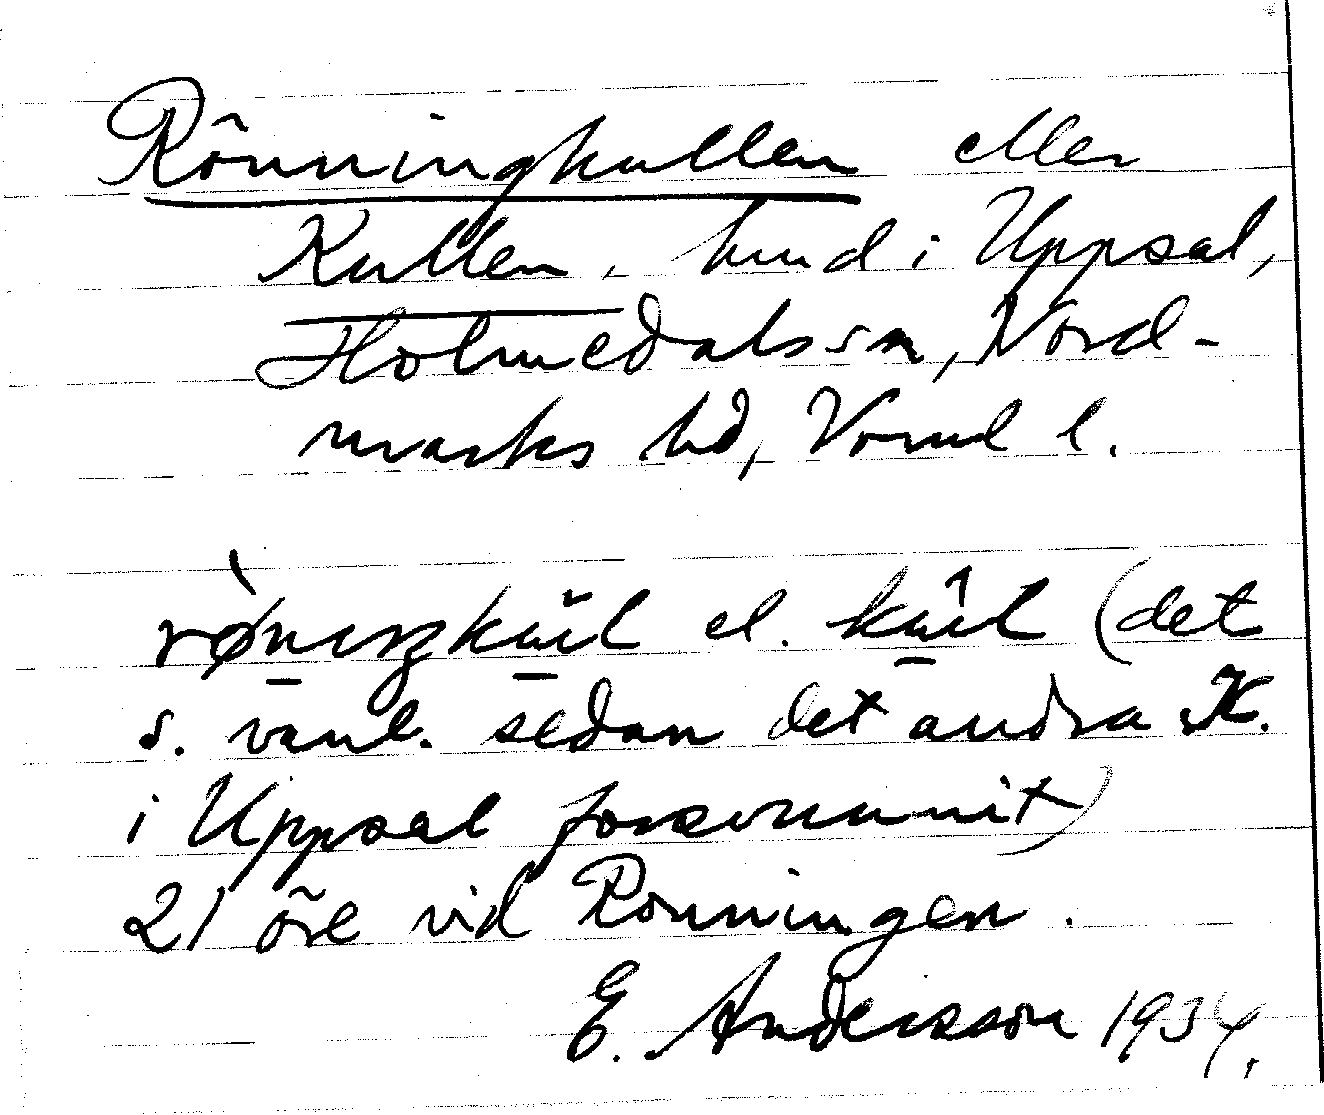 Rönningkullen eller
Kullen, lund i Uppsal,
Holmedals sn, Nord-
marks hd, Värml l.
el. (det
s. vanl. sedan det andra K.
i Uppsal försvunnit)
21 öre vid Rönningen.
E. Andersson 1934.